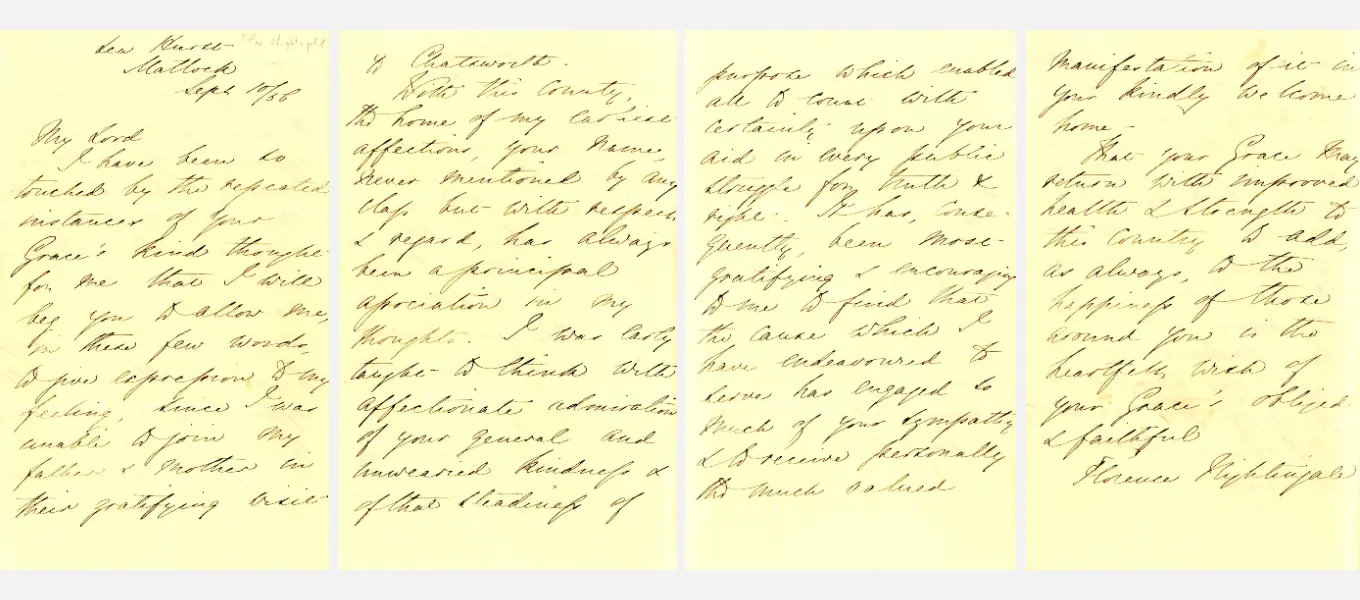 Lea Hurst
Matlock
Sept 10/56
My Lord
I have been so
touched by the repeated
instances of your
Grace's kind thought
for me that I will
beg you to allow me,
in these few words,
to give expression to my
feeling, since I was
unable to join my
father & mother in
their gratifying visit
to Chatsworth.
With this County,
the home of my earliest
affections, your name,
never mentioned by any
class but with respect
& regard, has always
been a principal
association in my
thoughts. I was early
taught to think with
affectionate admiration
of your general and
unwearied kindness &
of that steadiness of
purpose which enabled
all to count with
certainty upon your
aid in every public
struggle for truth &
right. It has, conse-
quently, been most
gratifying & encouraging
to me to find that
the cause which I
have endeavoured to
serve has engaged so
much of your sympathy
& to receive personally
the much valued
manifestation of it in
your kindly welcome
home.
That your Grace may
return with improved
health & strength to
this Country to add,
as always, to the
happiness of those
around you is the
heartfelt wish of
your Grace's obliged
& faithful
Florence Nightingale